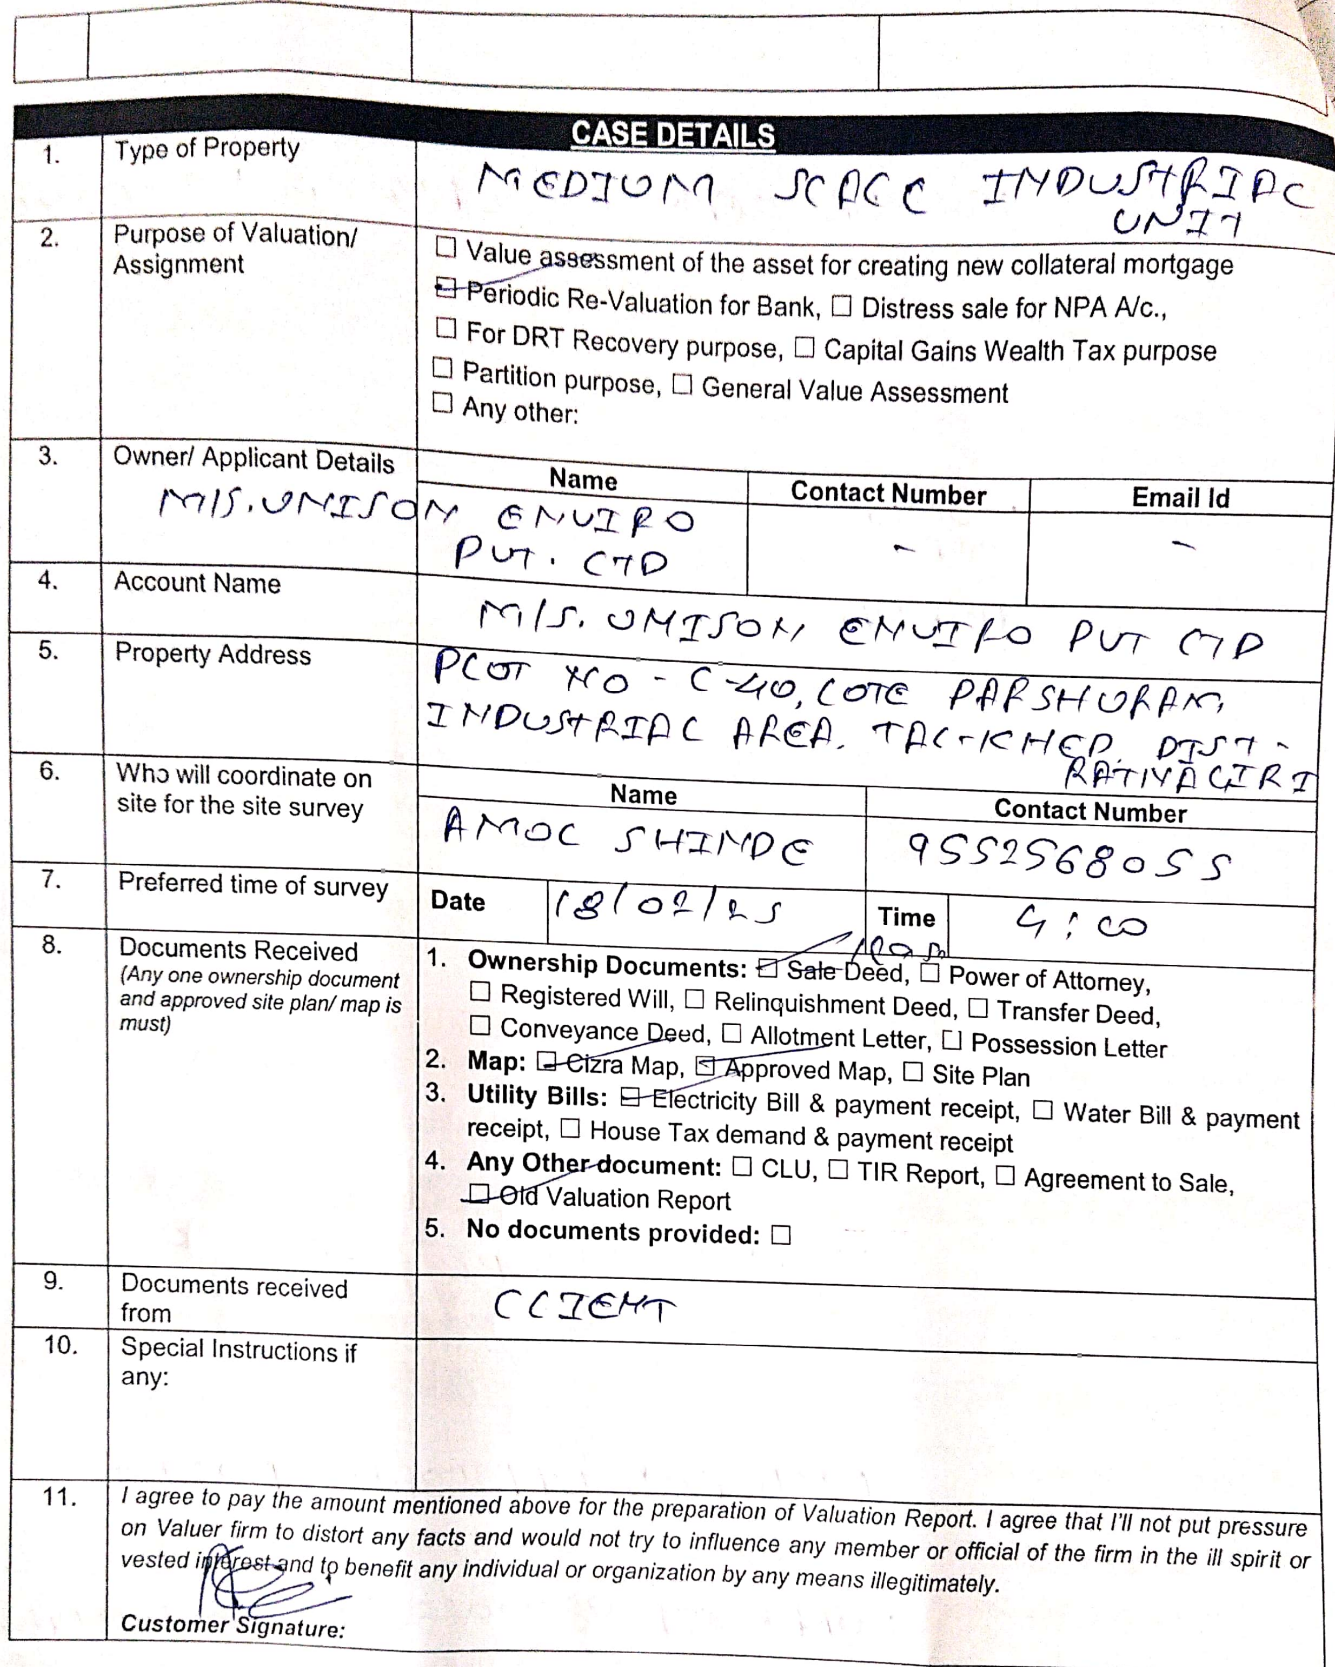 CASE DETAILS
1. Type of Property
MEDIUM SCALE INDUSTRIAL
UNIT
2. Purpose of Valuation/
Assignment
☐ Value assessment of the asset for creating new collateral mortgage
☑ Periodic Re-Valuation for Bank, ☐ Distress sale for NPA A/c.,
☐ For DRT Recovery purpose, ☐ Capital Gains Wealth Tax purpose
☐ Partition purpose, ☐ General Value Assessment
☐ Any other:
3. Owner/ Applicant Details
Name Contact Number Email Id
M/S. UNISON ENVIRO - -
PVT. LTD
4. Account Name
M/S. UNISON ENVIRO PVT LTD
5. Property Address
PLOT NO - C-40, LOTE PARSHURAM,
INDUSTRIAL AREA. TAL-KHED. DIST-
RATNAGIRI
6. Who will coordinate on
site for the site survey
Name Contact Number
AMOL SHINDE 9552568055
7. Preferred time of survey
Date 18/02/25 Time 4:00
8. Documents Received
(Any one ownership document
and approved site plan/ map is
must)
1. Ownership Documents: ☑ Sale Deed, ☐ Power of Attorney,
☐ Registered Will, ☐ Relinquishment Deed, ☐ Transfer Deed,
☐ Conveyance Deed, ☐ Allotment Letter, ☐ Possession Letter
2. Map: ☑ Cizra Map, ☑ Approved Map, ☐ Site Plan
3. Utility Bills: ☑ Electricity Bill & payment receipt, ☐ Water Bill & payment
receipt, ☐ House Tax demand & payment receipt
4. Any Other document: ☐ CLU, ☐ TIR Report, ☐ Agreement to Sale,
☑ Old Valuation Report
5. No documents provided: ☐
9. Documents received
from
CLIENT
10. Special Instructions if
any:
11. I agree to pay the amount mentioned above for the preparation of Valuation Report. I agree that I'll not put pressure
on Valuer firm to distort any facts and would not try to influence any member or official of the firm in the ill spirit or
vested interest and to benefit any individual or organization by any means illegitimately.
Customer Signature: